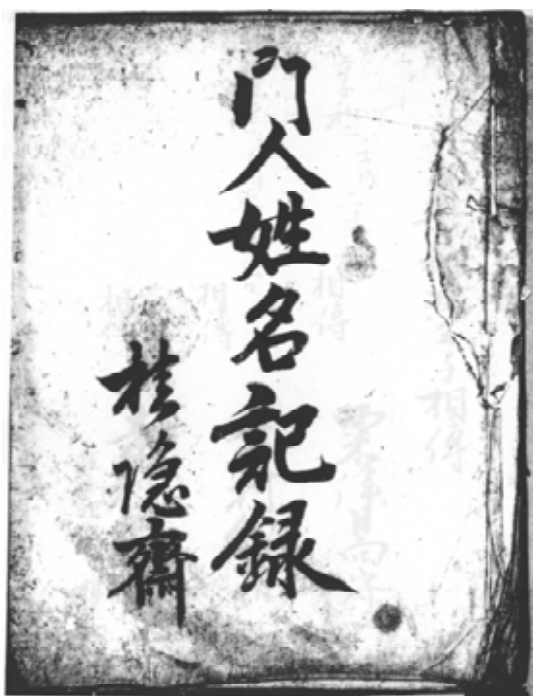 門人姓名記録
桂隠齋